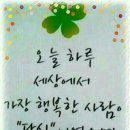 오늘 하루
세상에서
가장 행복한 사람이
"당신"